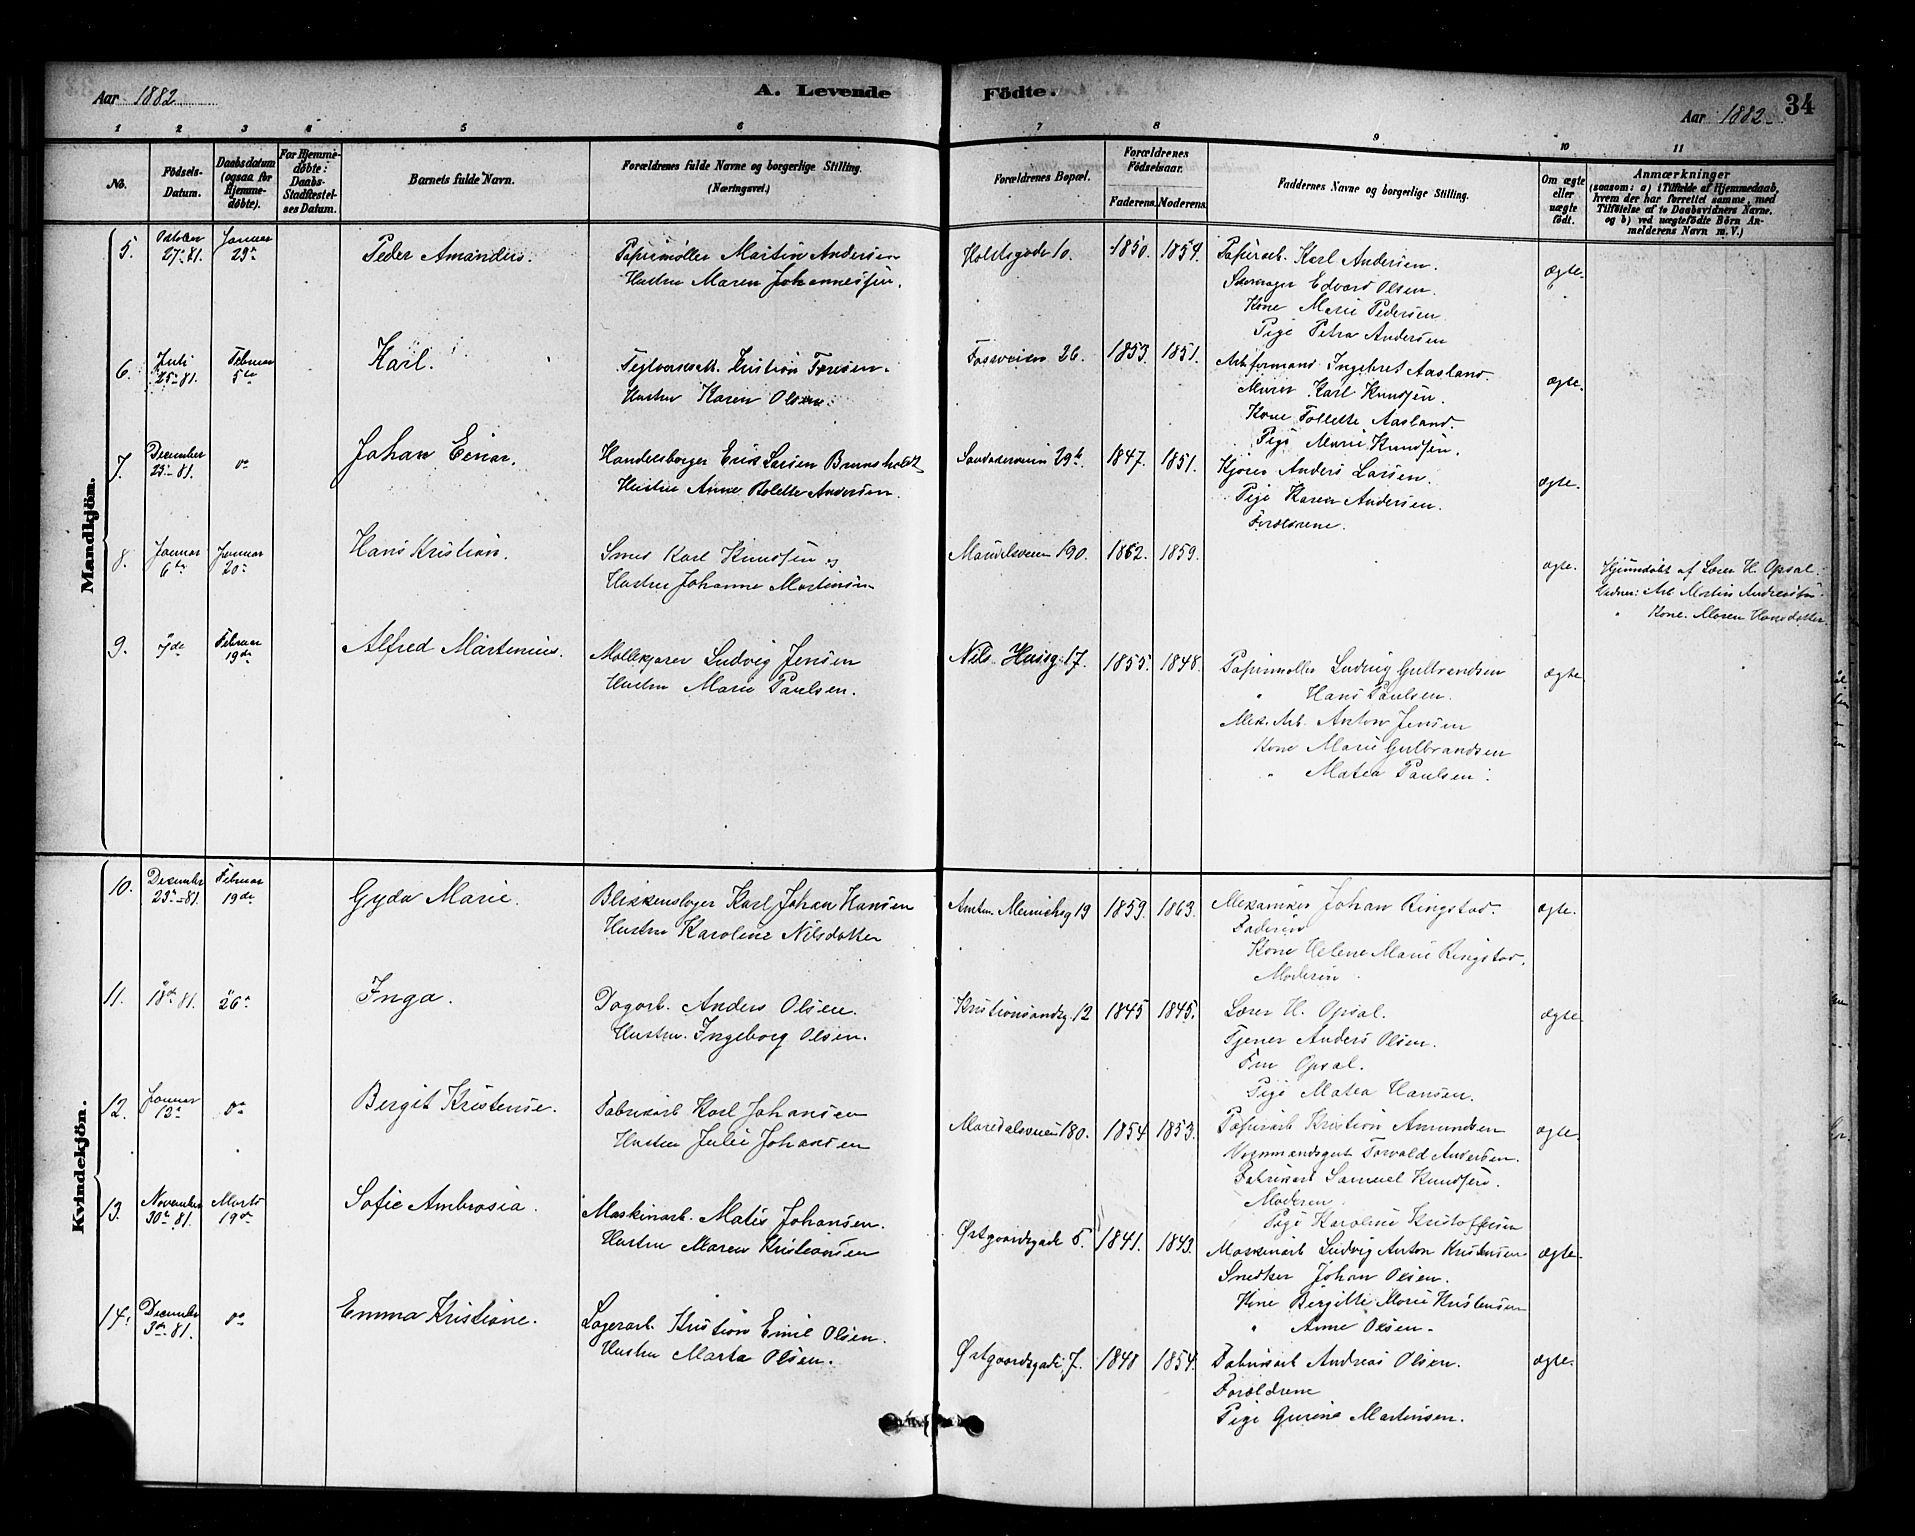 Aar 1882
A. Levende Födte.
Aar 1882
34
1 2 3 4 5 6 7 8 9 10 11
No.
Födsels-Datum.
Daabsdatum (ogsaa for Hjemmedöbte).
For Hjemmedöbte: Daabs-Stadfæstelses Datum.
Barnets fulde Navn.
Forældrenes fulde Navne og borgerlige Stilling. (Næringsvei.)
Forældrenes Bopæl.
Forældrenes Födselsaar.
Faderens. Moderens.
Faddernes Navne og borgerlige Stilling.
Om ægte eller uægte födt.
Anmærkninger
(saasom: a) i Tilfælde af Hjemmedaab,
hvem der har forrettet samme, med
Tilföielse af to Daabsvidners Navne.
og b) ved uægtefödte Börn An-
melderens Navn m. V.)
Mandkjön.
5. October 27-81. Januar 29n Peder Amandus. Martin Andersen Holstsgade 10. 1850. 1854. Papirarb. Karl Andersen. ægte.
Hustru Maren Johannessen.
Edvard Olsen.
Kone Marie Pedersen
Pige Petra Andersen
6. Juli 25-81. Februar 5te Karl. Kristian Hustru Karen Olsen. Fossveien 26. 1853. 1851. Arb.formand Ingebret Aasland. ægte.
Murer Karl Knudsen.
Kone Tollette Aasland.
Pige Marie Knudsen.
7. December 25-81. do Johan Einar. Handelsborger Eris Larsen 29b. 1847. 1851. Kjører Anders Larsen. ægte.
Hustru Anne Bolette Andersen.
Pige Karen Andersen.
Forældrene.
8. Januar 6te Januar 20n Hans Kristian. Smed Karl Knudsen og 190. 1862. 1859. ægte. Hjemmdøbt af Lærer H. Opsal.
Hustru Johanne
Vidner: Arb. Martin
Kone Maren Hansdatter.
9. " 7de Februar 19de Alfred Martinius. Møllekjører Ludvig Jensen Nils Husesg. 17. 1855. 1848. Papirmøller Ludvig Gulbrandsen ægte
Hustru Marie Paulsen.
" Hans Paulsen.
Mek. Arb. Anton Jensen
Kone Marie Gulbrandsen
" Matea Paulsen.
Kvindekjön.
10. December 25-81. Februar 19de Gyda Marie. Blikkenslager Karl Johan Hansen Amtm. Meinichsg 19 1859. 1863. Mekaniker Johan Ringstad. ægte.
Hustru Karoline Nilsdatter
Faderen
Kone Helene Marie Ringstad.
Moderen
11. " 18de 81. " 26n Inga. Dagarb. Anders Olsen. Kristiansandsg 12 1845 1845. Lærer H. Opsal. ægte
Hustru Ingeborg Olsen.
Tjener Anders Olsen.
Fru Opsal.
Pige Matea Hansen.
12. Januar 13n do Birgit Kristense. Fabrikarb Karl Johansen Maridalsveien 180. 1854 1853. Papirarb Kristian Amundsen ægte.
Hustru Julie Johansen
Torvald Andersen.
Fabrikarb Samuel Knudsen.
Moderen
Pige Karoline Kristoffersen
13. November 30n 81. Marts 19de Sofie Ambrosia. Maskinarb. Matis Johansen. Østgaardsgade 5. 1841. 1843. Maskinarb Ludvig Anton Kristensen ægte
Hustru Maren Kristiansen
Snedker Johan Olsen.
Kone Birgitte Marie Kristensen
" Anne Olsen.
14. December 3de 81. do Emma Kristiane. Lagerarb. Kristian Emil Olsen. Østgaardsgade 7. 1848 1854. Fabrikarb Andreas Olsen. ægte.
Hustru Marta Olsen.
Forældrene
Pige Gurine Martinsen.